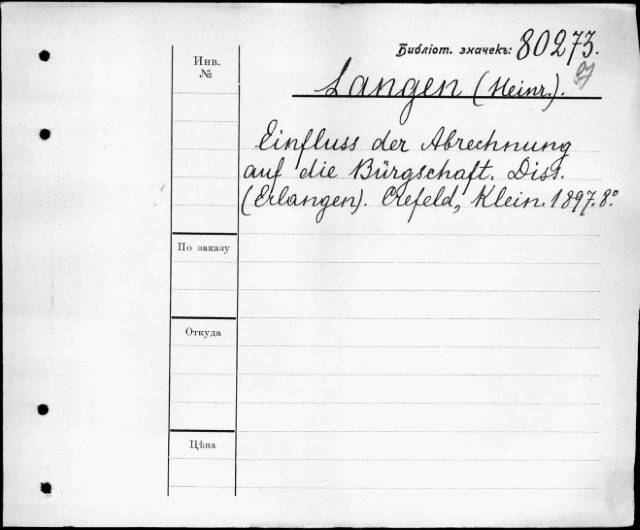 Библіот. значекъ: 80273.
Инв. №
Langen (Heinr.).
Einfluss der Abrechnung
auf die Bürgschaft. Diss.
(Erlangen). Crefeld, Klein. 1897. 8°.
По заказу
Откуда
Цѣна